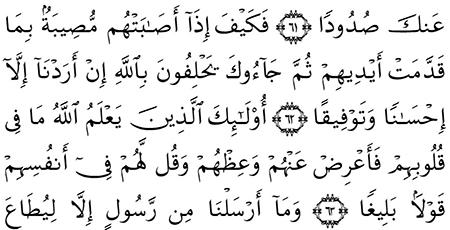 عَنكَ صُدُودًا ٦١ فَكَيْفَ إِذَآ أَصَٰبَتْهُم مُّصِيبَةٌۢ بِمَا
قَدَّمَتْ أَيْدِيهِمْ ثُمَّ جَآءُوكَ يَحْلِفُونَ بِٱللَّهِ إِنْ أَرَدْنَآ إِلَّآ
إِحْسَٰنًا وَتَوْفِيقًا ٦٢ أُو۟لَٰٓئِكَ ٱلَّذِينَ يَعْلَمُ ٱللَّهُ مَا فِى
قُلُوبِهِمْ فَأَعْرِضْ عَنْهُمْ وَعِظْهُمْ وَقُل لَّهُمْ فِىٓ أَنفُسِهِمْ
قَوْلًۢا بَلِيغًا ٦٣ وَمَآ أَرْسَلْنَا مِن رَّسُولٍ إِلَّا لِيُطَاعَ